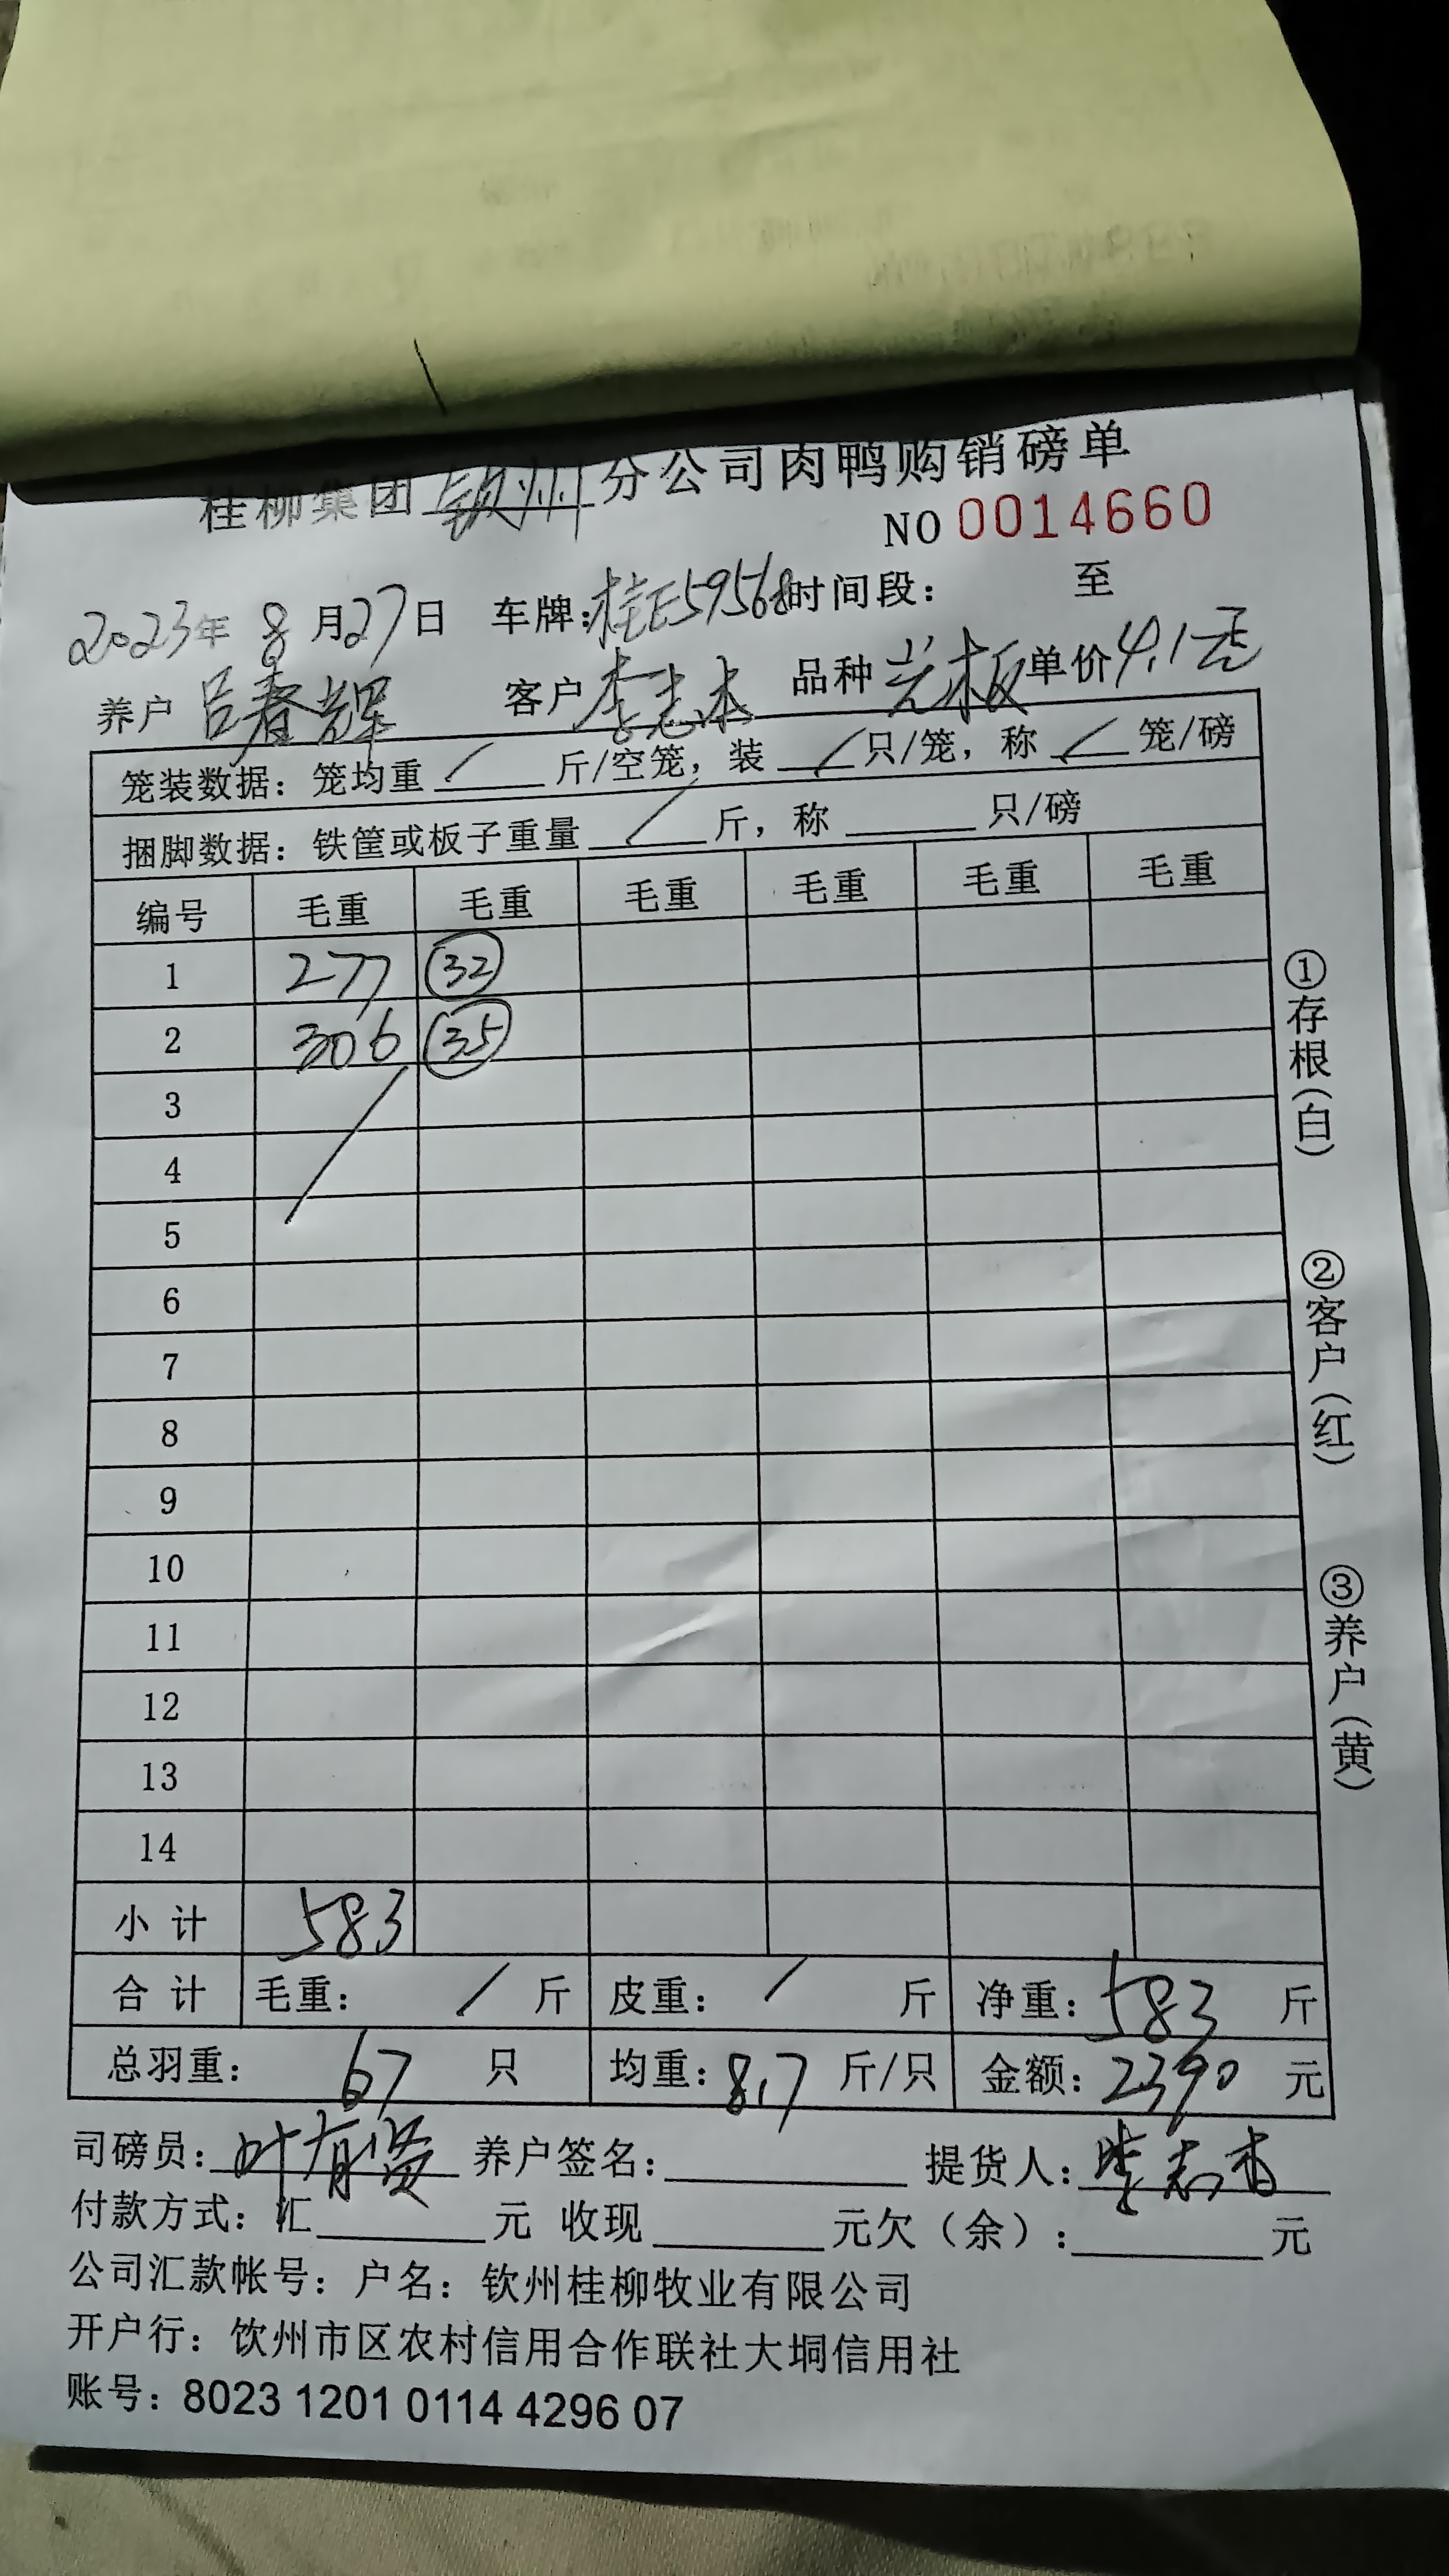 桂柳集团钦州分公司肉鸭购销磅单
NO 0014660
2023年 8月27日 车牌:桂E59568时间段: 至
养户 吕春辉 客户 李志本 品种 光板 单价4.1元
笼装数据: 笼均重 / 斤/空笼, 装 / 只/笼, 称 / 笼/磅
捆脚数据: 铁筐或板子重量 / 斤, 称 只/磅
编号 毛重 毛重 毛重 毛重 毛重 毛重
1 277 32
2 306 35
3
4
5
6
7
8
9
10
11
12
13
14
小计 583
合计 毛重: / 斤 皮重: / 斤 净重: 583 斤
总羽重: 67 只 均重: 8.7 斤/只 金额: 2390 元
司磅员: 叶有贤 养户签名: 提货人:
付款方式: 汇 元 收现 元欠(余): 元
公司汇款帐号: 户名: 钦州桂柳牧业有限公司
开户行: 饮州市区农村信用合作联社大垌信用社
账号: 8023 1201 0114 4296 07
①存根(白)
②客户(红)
③养户(黄)